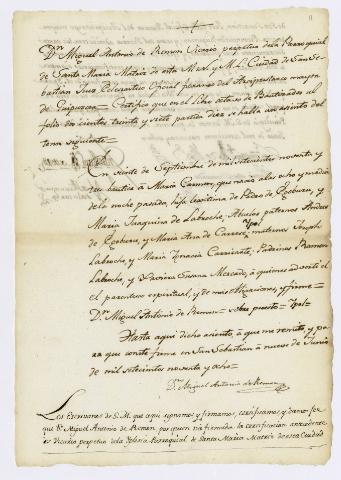 Dn. Miguel Antonio de Remon Vicario perpetuo de la Parroquial
de Santa Maria Matriz de esta M. N. y M. L. Ciudad de San Se-
bastian Juez Eclesiastico Oficial foraneo del Arciprestazgo mayor
de Guipuzcoa = Certifico que en el Libro octavo de Bautizados al
folio doscientos treinta y siete partida diez se halla un asiento del
tenor siguiente
En veinte de Septiembre de mil setecientos noventa y
tres bautice à Maria Carmen, que nacio à las ocho y media
de la noche pasada, hija legitima de Pedro de y
Maria Juaquina de Labroche, Abuelos paternos Andres
de y Maria Ana de maternos Joseph
Labroche, y Maria Ignacia Padrinos Ramon
Labroche, y Xaviera Susana Mercado, à quienes advertì el
el parentesco espiritual, y demas obligaciones, y firmè
Dn. Miguel Antonio de Remon = sobre puesto =
Hasta aqui dicho asiento, à que me remito, y pa-
ra que conste firmo en San Sebastian à nueve de Junio
de mil setecientos noventa y ocho =
Dn. Miguel Antonio de Remon
Los Escribanos de S. M. que aqui signamos y firmamos, certificamos y damos fee
que Dn. Miguel Antonio de Remon, por quien va firmada la certificacion antecedente
es Vicario perpetuo de la Yglesia Parroquial de Santa Maria Matriz de esta Ciudad